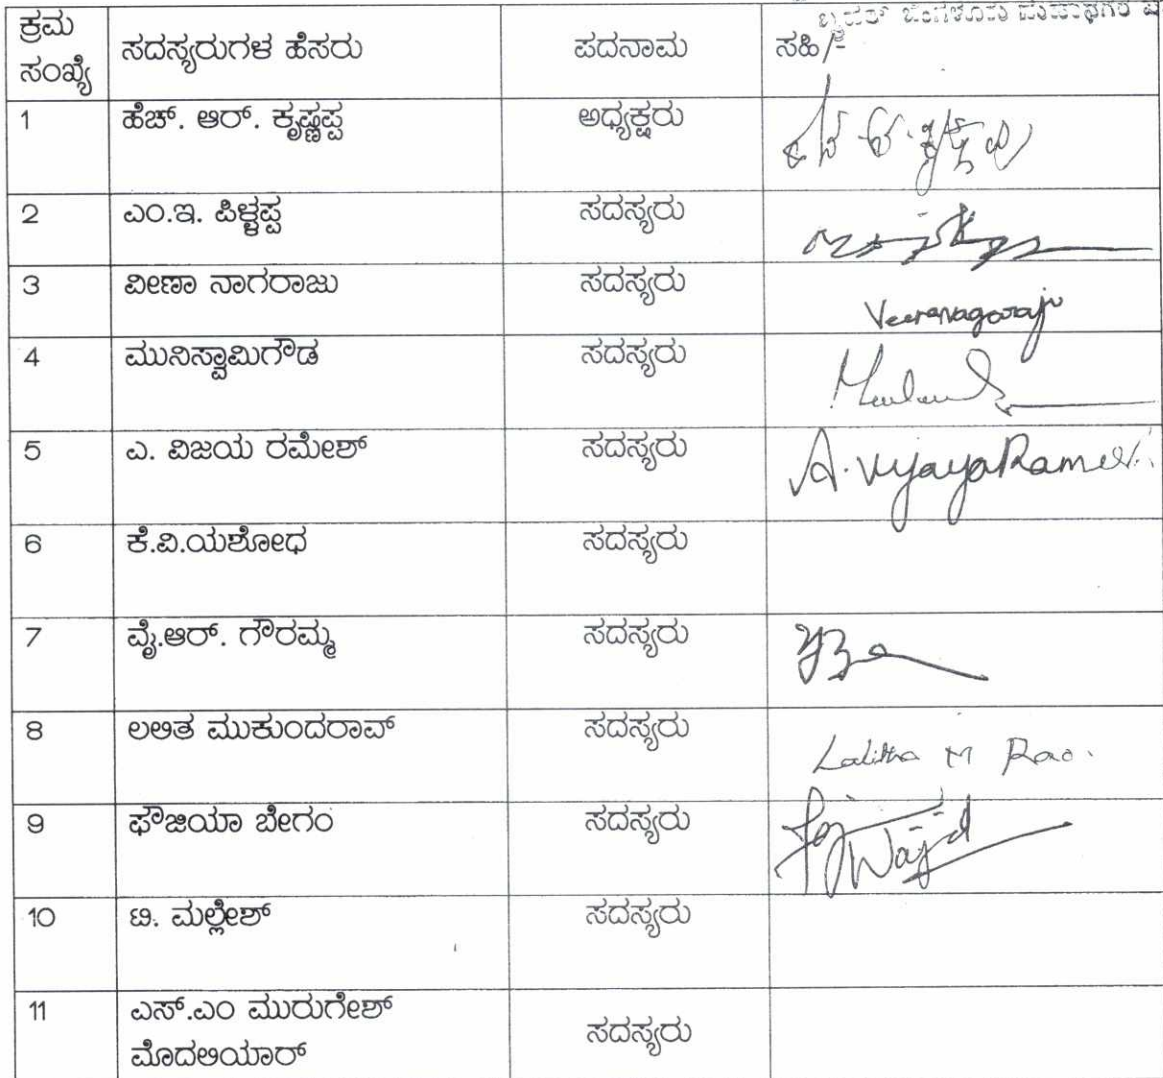 ಕ್ರಮ ಸಂಖ್ಯೆ ಸದಸ್ಯರುಗಳ ಹೆಸರು ಪದನಾಮ ಸಹಿ/-
1 ಹೆಚ್. ಆರ್. ಕೃಷ್ಣಪ್ಪ ಅಧ್ಯಕ್ಷರು
2 ಎಂ.ಇ. ಪಿಳ್ಳಪ್ಪ ಸದಸ್ಯರು
3 ವೀಣಾ ನಾಗರಾಜು ಸದಸ್ಯರು
4 ಮುನಿಸ್ವಾಮಿಗೌಡ ಸದಸ್ಯರು
5 ಎ. ವಿಜಯ ರಮೇಶ್ ಸದಸ್ಯರು A. Vijaya Ramesh
6 ಕೆ.ವಿ.ಯಶೋಧ ಸದಸ್ಯರು
7 ವೈ.ಆರ್. ಗೌರಮ್ಮ ಸದಸ್ಯರು
8 ಲಲಿತ ಮುಕುಂದರಾವ್ ಸದಸ್ಯರು Lalitha M Rao.
9 ಫೌಜಿಯಾ ಬೇಗಂ ಸದಸ್ಯರು
10 ಟಿ. ಮಲ್ಲೇಶ್ ಸದಸ್ಯರು
11 ಎಸ್.ಎಂ ಮುರುಗೇಶ್ ಸದಸ್ಯರು
ಮೊದಲಿಯಾರ್